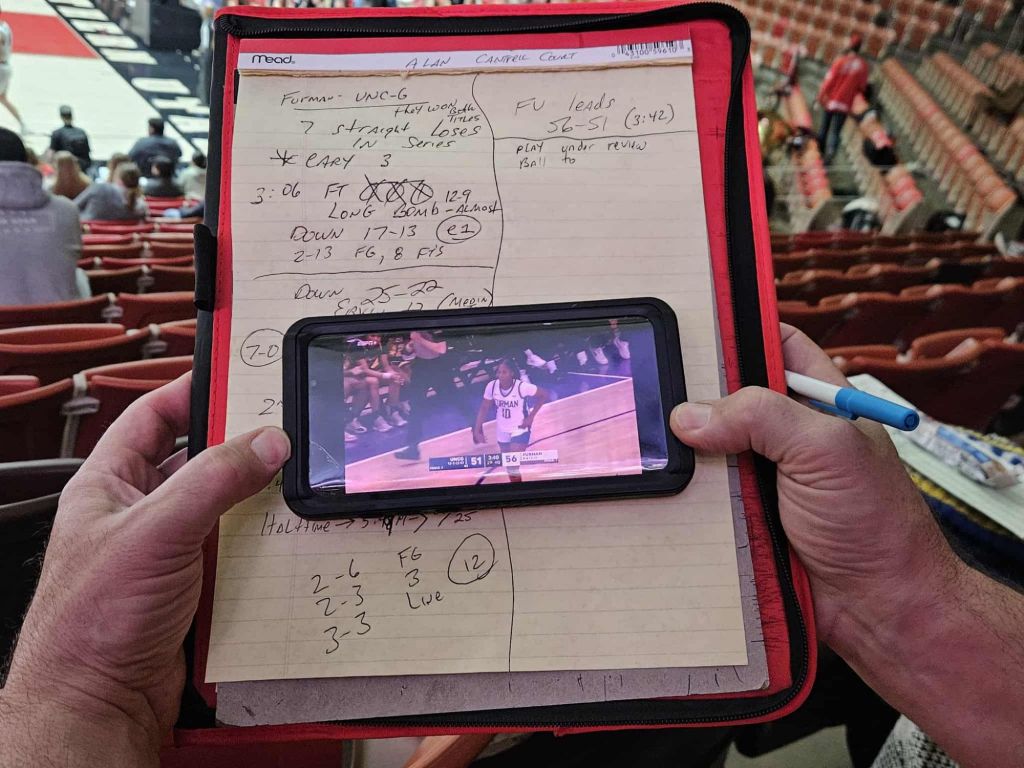 Mead
ALAN CANTRELL COURT
0 43100 59610
FURMAN - UNC-G
they won Both
TITLES
7 straight Loses
IN SERIES
* CARY 3
3:06 FT 12-9
LONG BOMB - ALMOST
DOWN 17-13 e1
2-13 FG, 8 FT'S
DOWN 25-22
(MEDIA)
7-0
FU leads
56-51 (3:42)
PLAY under review
Ball to
ESPN+
FURMAN
10
UNCG 51 3:40 56 FURMAN
Halftime →
2-6 FG 12
2-3 3
3-3 Live